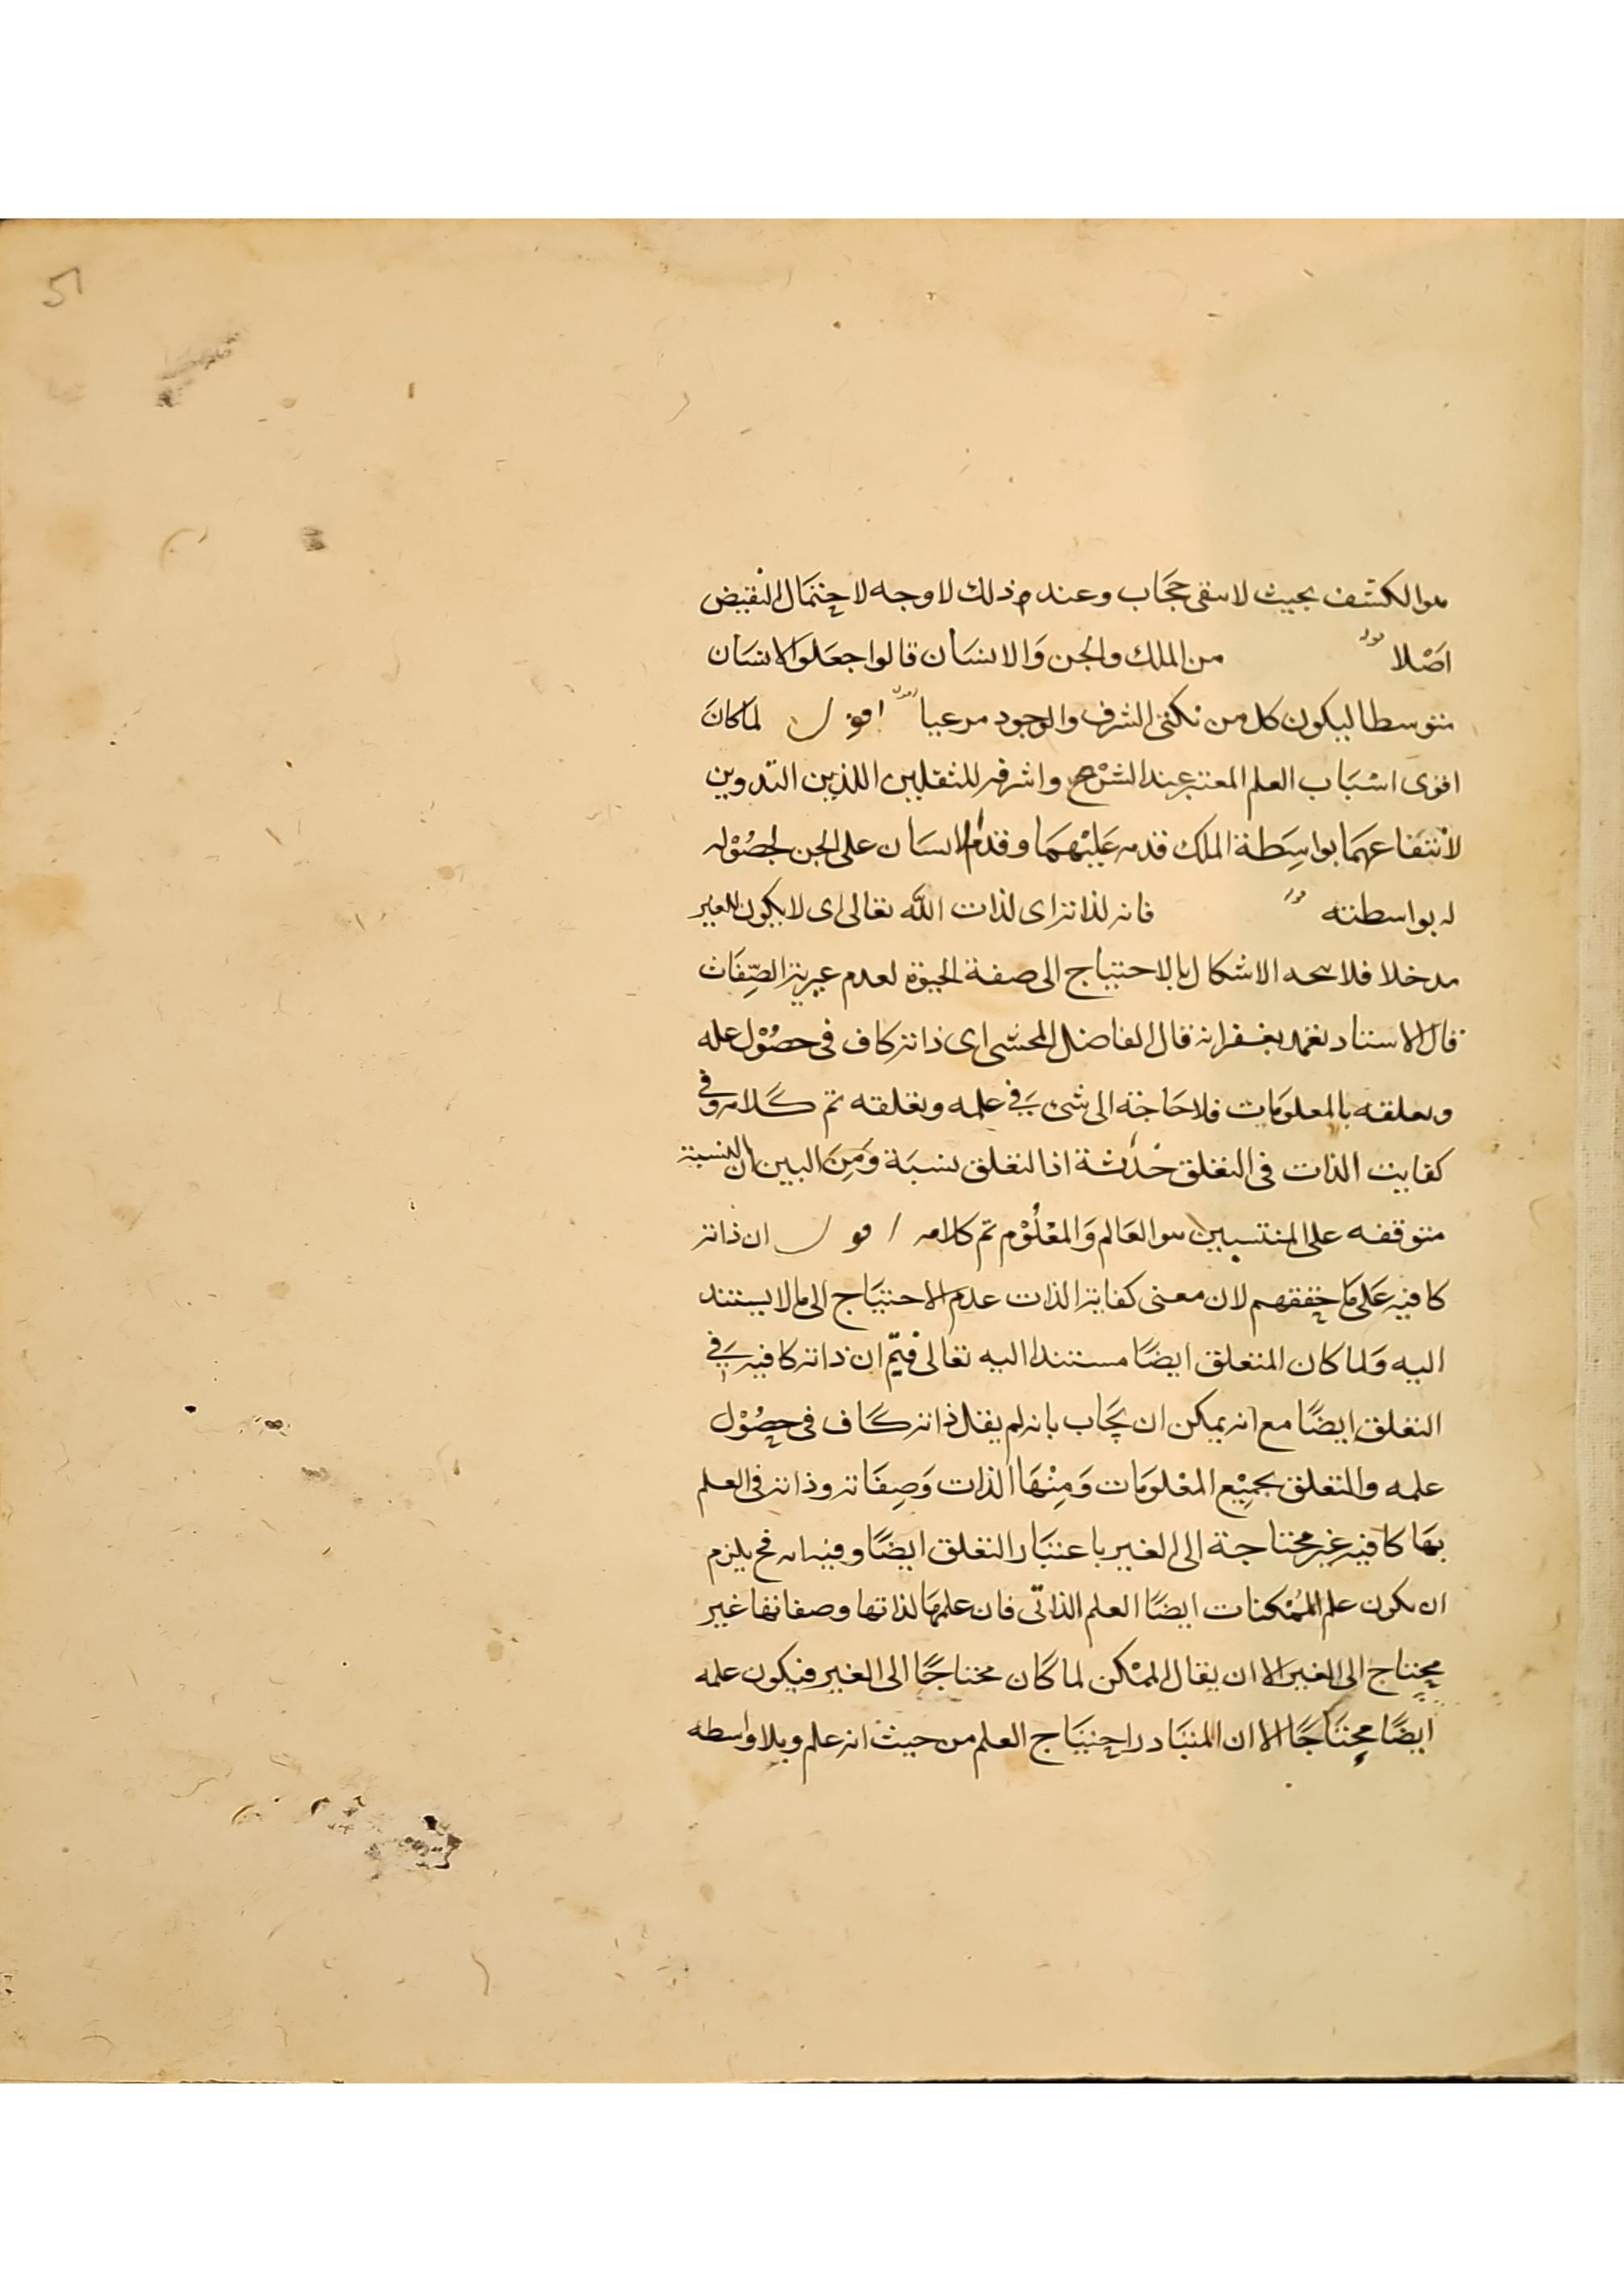 51
هو الكشف بحيث لا يبقى حجَاب وعندم ذلك لا وجه لاحتمَال النقيض
اصْلا قوله من الملك والجن وَالانسَان قالوا جعَلوا الانسَان
متوسطا ليكون كل من نكتتى الشرف والوجود مرعيا اقول لما كانَ
اقوى اسْبَاب العلم المعتبر عند الشرْح واشرفه للثقلين اللذين التدوين
لانتفاعهمَا بواسِطة الملك قدمه عَليْهمَا وقدم الانسَان على الجن لحصُوْله
له بواسطته قوله فانه لذاته اى لذات الله تعالى اى لا يكون للغير
مدخلا فلا يتجه الاشكال بالاحتياج الى صفة الحيوة لعدم غيرية الصِّفَات
قال الاستاد تغمد بغفرانه قال الفاضل المحشى اى ذاته كاف فى حصُوْل علمه
وتعلقه بالمعلومَات فلا حَاجة الى شئ فى علمه وتعلقه تم كَلامه وفى
كفايت الذات فى التعلق خدْشة اذ التعلق نسبَة وَمِنَ البين ان النسبة
متوقفه على المنتسبين هو العَالم وَالمعْلُوْم تم كلامه اقول ان ذاته
كافيه عَلى مَا حققهم لان معنى كفاية الذات عدم الاحتيَاج الى ما لا يستند
اليه وَلما كان المتعلق ايضًا مستندا اليه تعالى فيتم ان ذاته كافيه فى
التعلق ايضًا مع انه يمكن ان يجَاب بانه لم يقل ذاته كَاف فى حصُوْل
علمه والتعلق بجميْع المعْلومَات وَمِنْهَا الذات وَصِفَاته وذاته فى العلم
بهَا كافيه غير محتاجة الى الغير باعتبَار التعلق ايضًا وفيه انه فح يلزم
ان يكون علم المُمْكنات ايضًا العلم الذاتى فان علمهَا لذاتها وصفاتها غير
محتاج الى الغير الا ان يقال الممْكن لما كَان محتاجًا الى الغير فيكون علمه
ايضًا محتَاجًا الا ان المتبَادر احتيَاج العلم من حيث انه علم وبلا واسطه